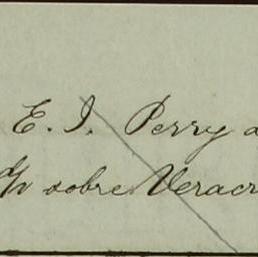 E. I. Perry
sobre Veracr